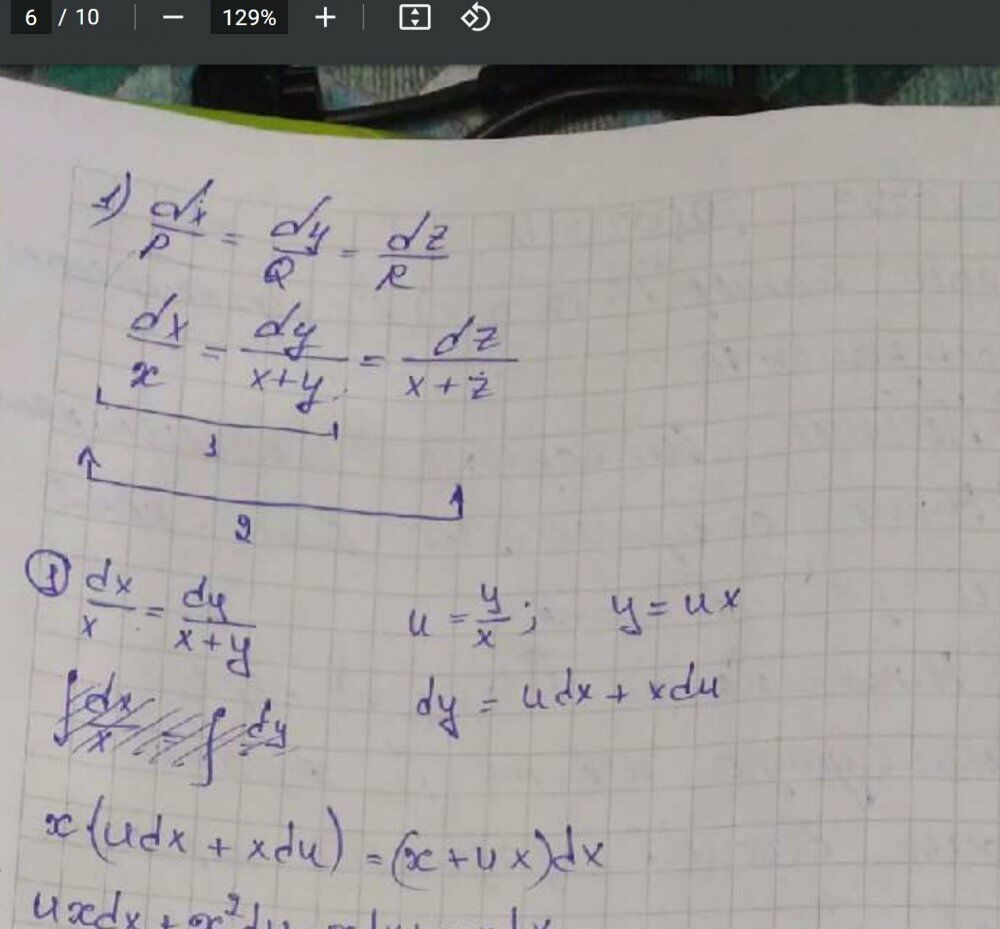 6 / 10 — 129% +
1) dx/P = dy/Q = dz/R
dx/x = dy/(x+y) = dz/(x+z)
1
2
① dx/x = dy/(x+y) u = y/x; y = ux
∫dx/x = ∫dy dy = udx + xdu
x(udx + xdu) = (x+ux)dx
uxdx + x²du